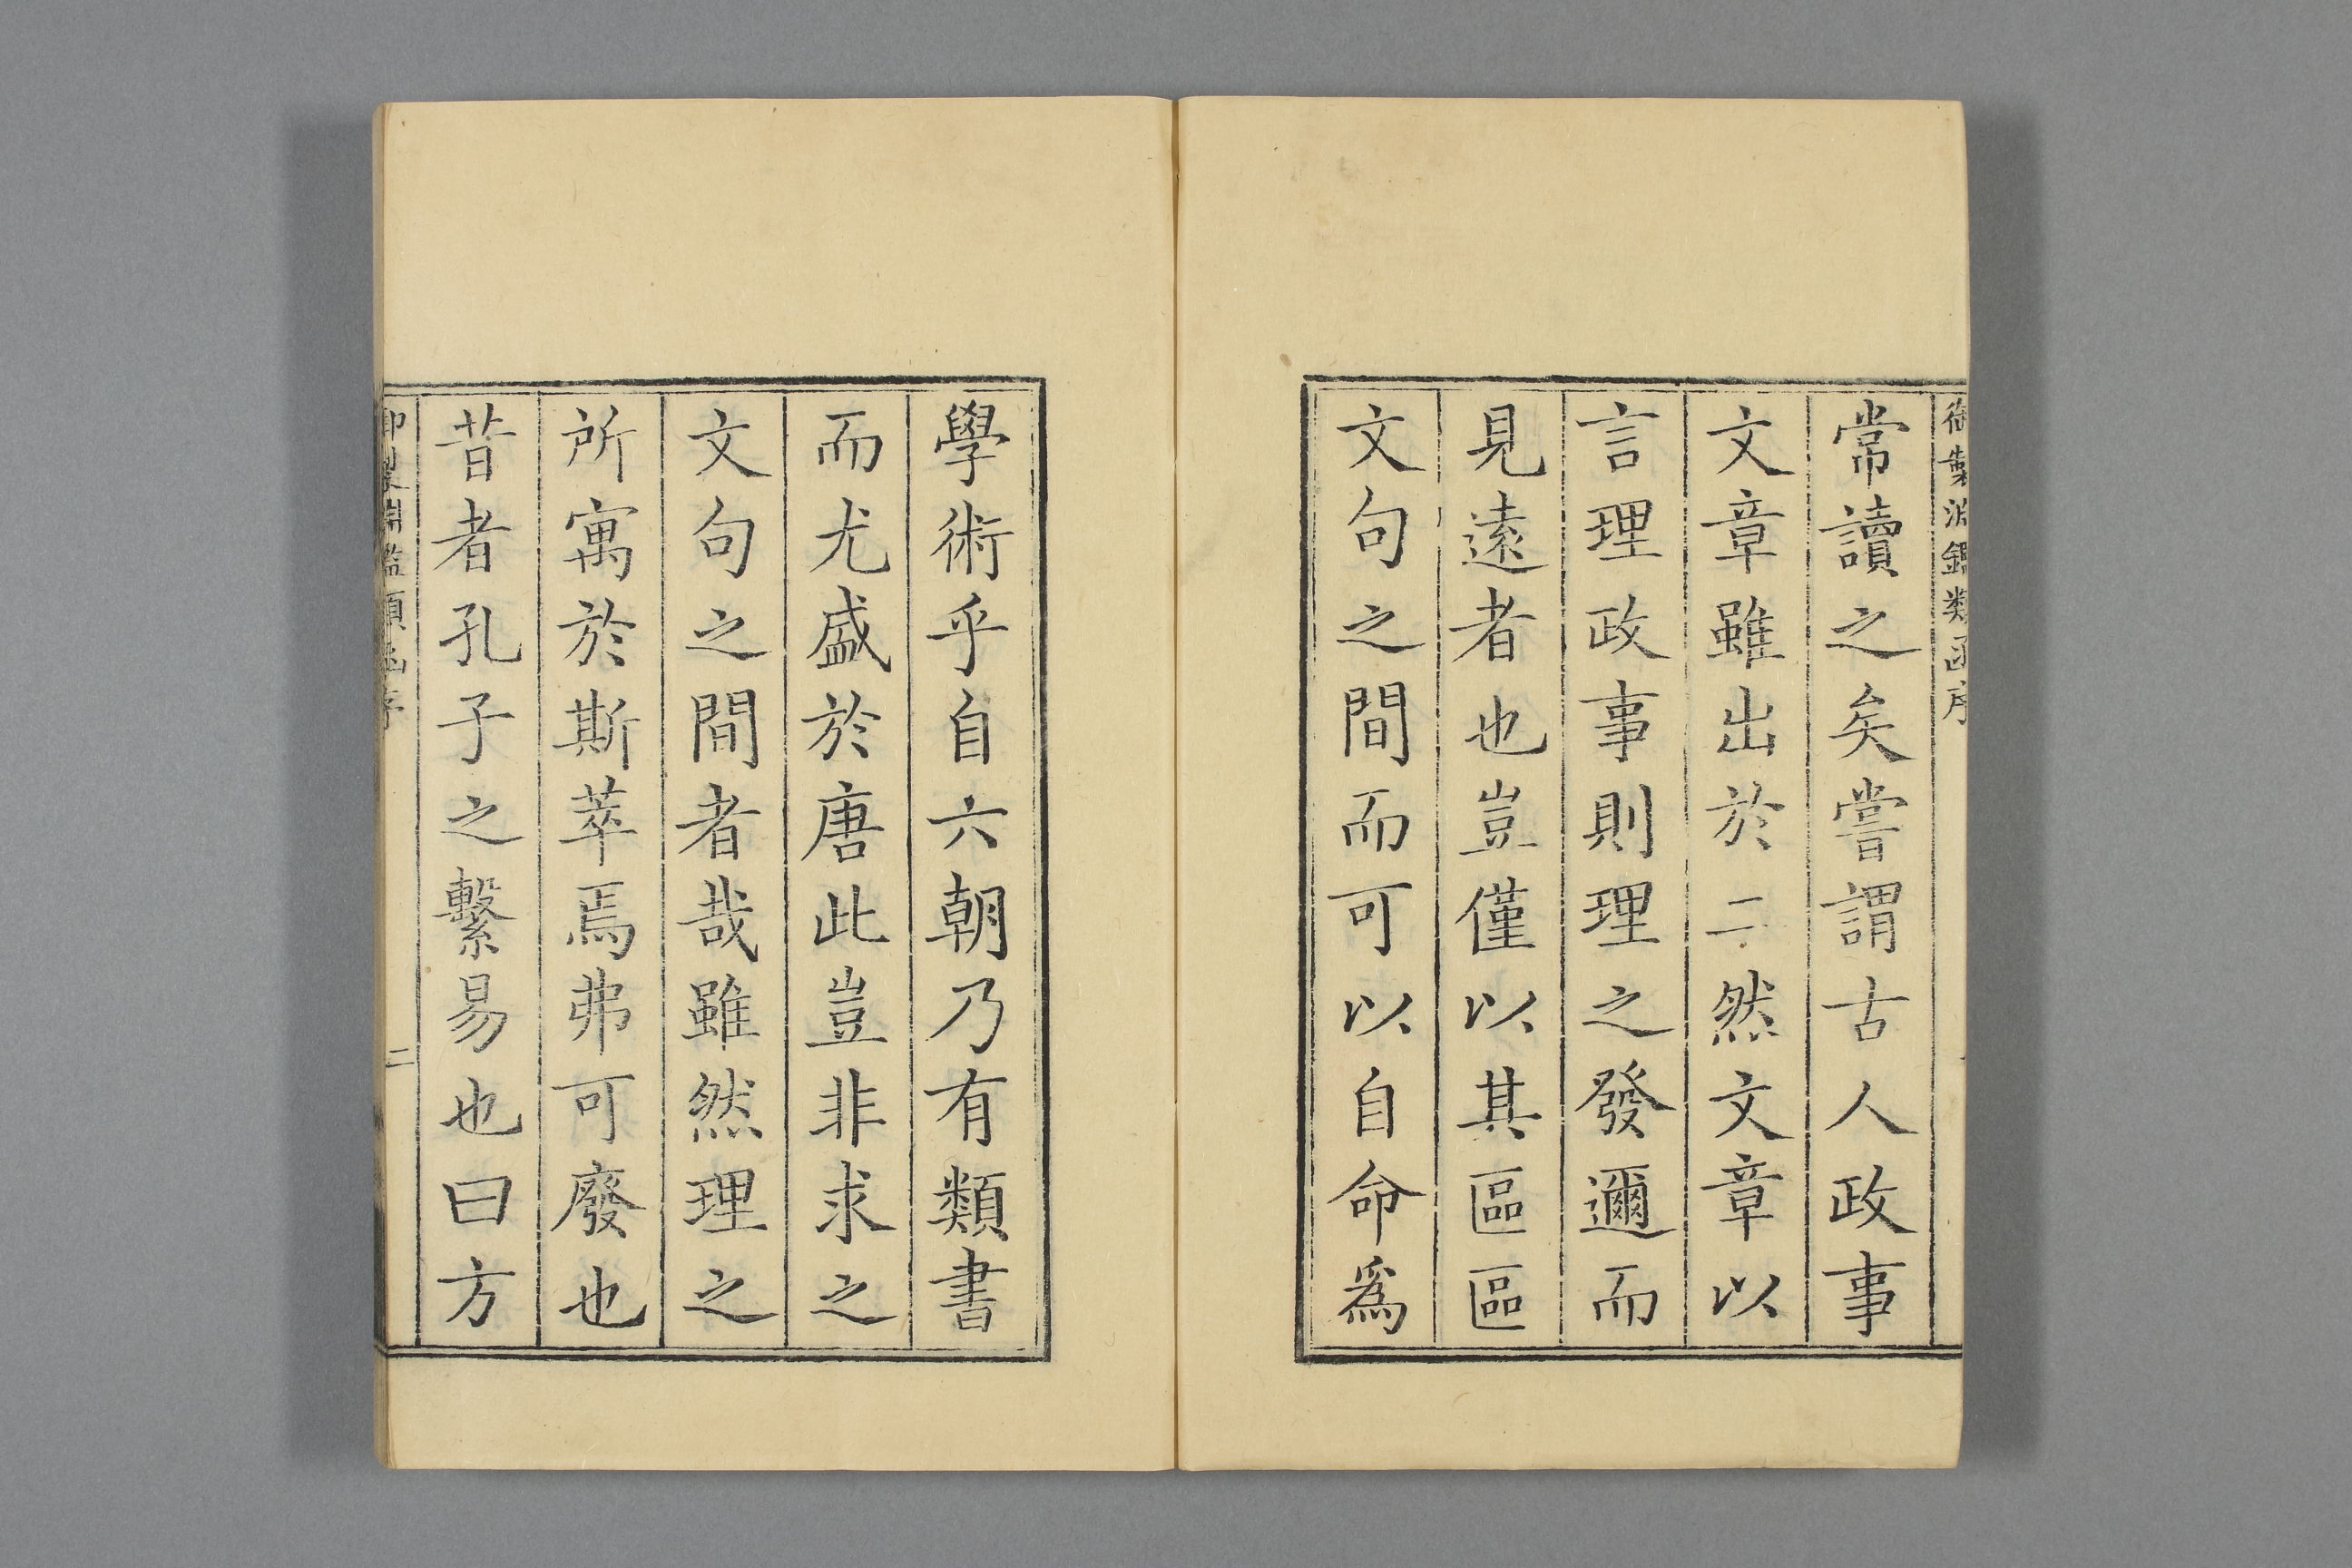 御製淵鑑類函序
常讀之矣嘗謂古人政事
文章雖出於二然文章以
言理政事則理之發邇而
見遠者也豈僅以其區區
文句之間而可以自命爲
學術乎自六朝乃有類書
而尤盛於唐此豈非求之
文句之間者哉雖然理之
所寓於斯萃焉弗可廢也
昔者孔子之繫易也曰方
御製淵鑑類函序
二